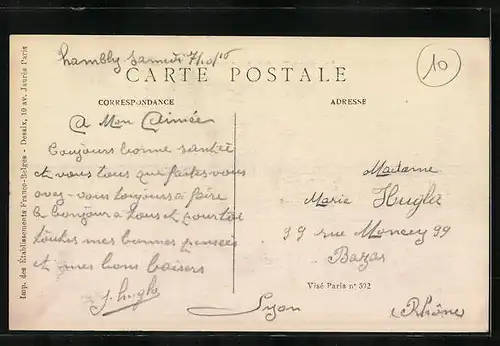 Chambly Samedi 7/10/16
10
CARTE POSTALE
CORRESPONDANCE
ADRESSE
A Mon Aimée
Toujours bonne santée
et vous tous que faites-vous
avez-vous toujours a faire
le bonjour a tous et pour toi
toutes mes bonnes pensées
et mes bons baisers
J. Hugla
Madame
Marie Hugla
99 rue Moncey 99
Bazar
Lyon
(Rhône)
Visé Paris nº 592
Imp. des Établissements Franco-Belges - Desaix, 10 av. Jaurès Paris